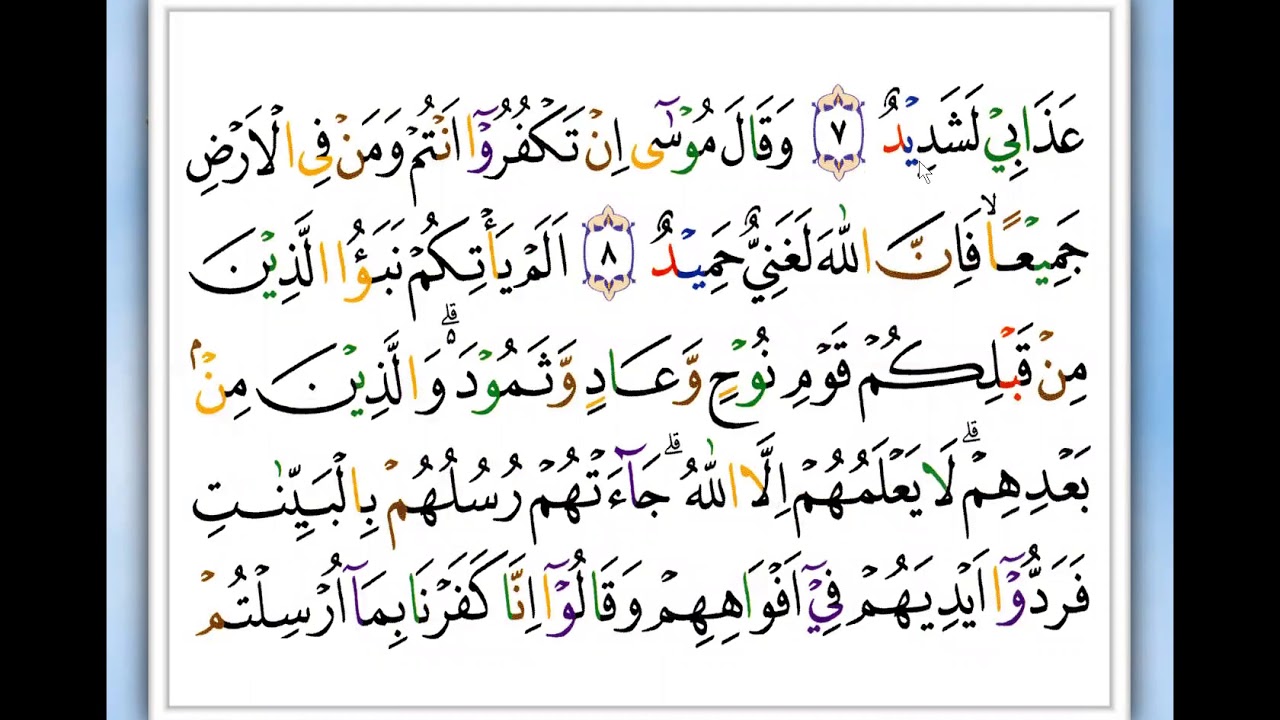 عَذَابِيْ لَشَدِيْدٌ ﴿٧﴾ وَقَالَ مُوْسٰٓى اِنْ تَكْفُرُوْٓا اَنْتُمْ وَمَنْ فِى الْاَرْضِ
جَمِيْعًا ۙ فَاِنَّ اللّٰهَ لَغَنِيٌّ حَمِيْدٌ ﴿٨﴾ اَلَمْ يَأْتِكُمْ نَبَـؤُا الَّذِيْنَ
مِنْ قَبْلِكُمْ قَوْمِ نُوْحٍ وَّعَادٍ وَّثَمُوْدَ ۛؕ وَالَّذِيْنَ مِنْۢ
بَعْدِهِمْ ۛؕ لَا يَعْلَمُهُمْ اِلَّا اللّٰهُ ؕ جَآءَتْهُمْ رُسُلُهُمْ بِالْبَيِّنٰتِ
فَرَدُّوْٓا اَيْدِيَهُمْ فِيْٓ اَفْوَاهِهِمْ وَقَالُوْٓا اِنَّا كَفَرْنَا بِمَآ اُرْسِلْتُمْ